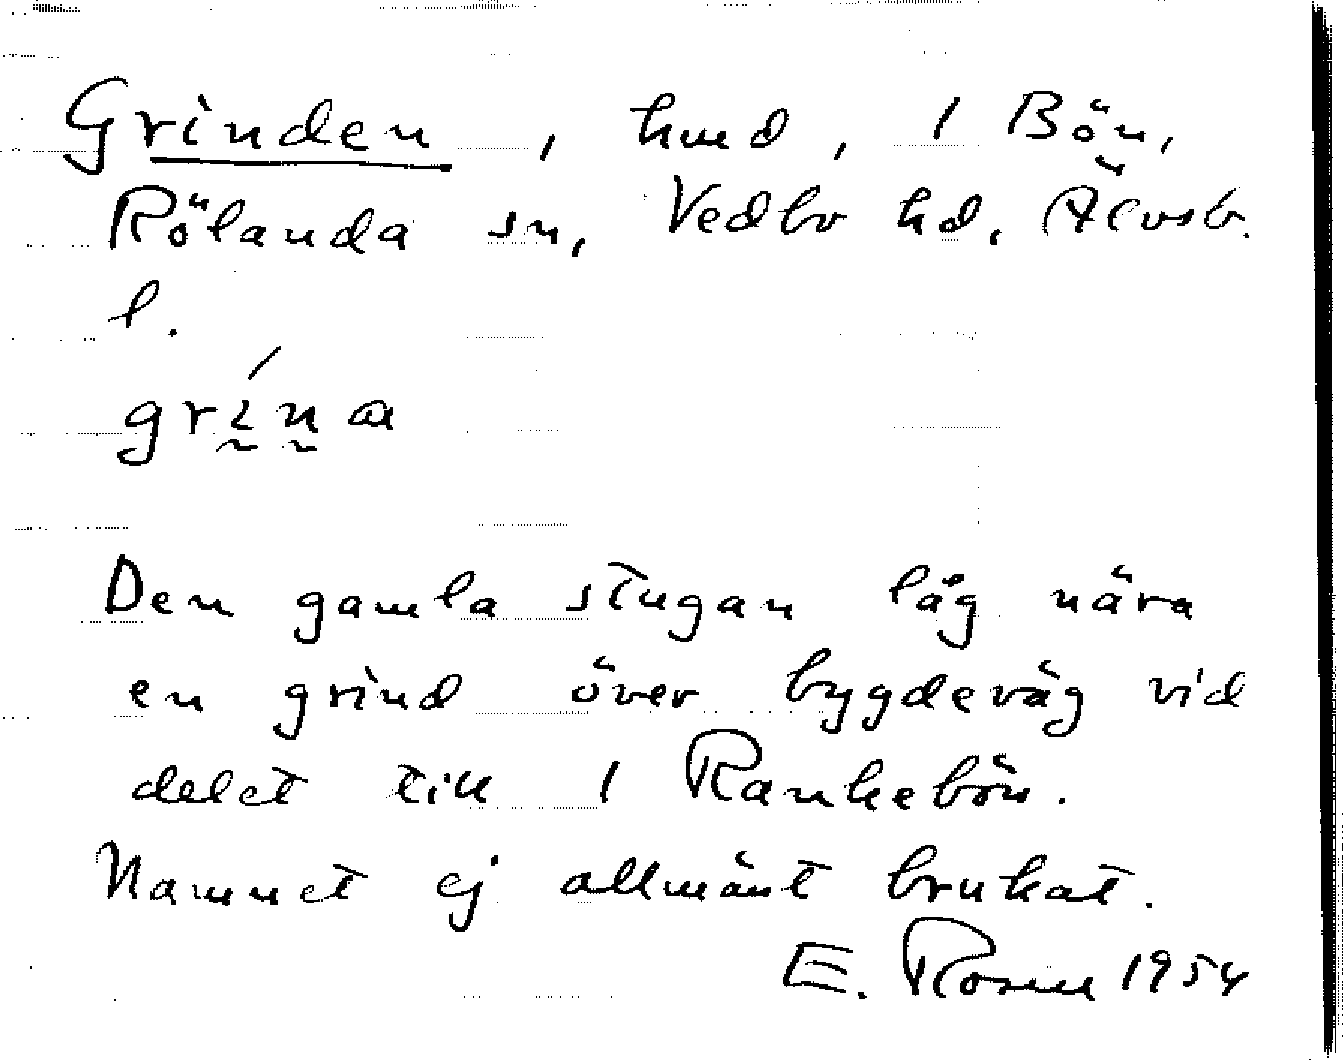 Grinden, hmd, 1 Bön,
Rölanda sn, Vedbo hd, Älvsb.
l.
grína
Den gamla stugan låg nära
en grind över bygdeväg vid
delet till 1 Rankebön.
Namnet ej allmänt brukat.
E. Rosell 1954